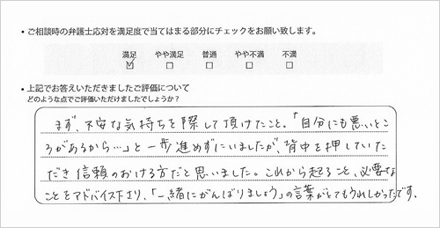 ・ご相談時の弁護士応対を満足度で当てはまる部分にチェックをお願い致します。
満足 やや満足 普通 やや不満 不満
・上記でお答えいただきましたご評価について
どのような点でご評価いただけましたでしょうか？
まず、不安な気持ちを際して頂けたこと。「自分にも悪いとこ
ろがあるから…」と一歩進めずにいましたが、背中を押していた
だき信頼のおける方だと思いました。これから起ること、必要な
ことをアドバイス下さり、「一緒にがんばりましょう」の言葉がとてもうれしかったです。